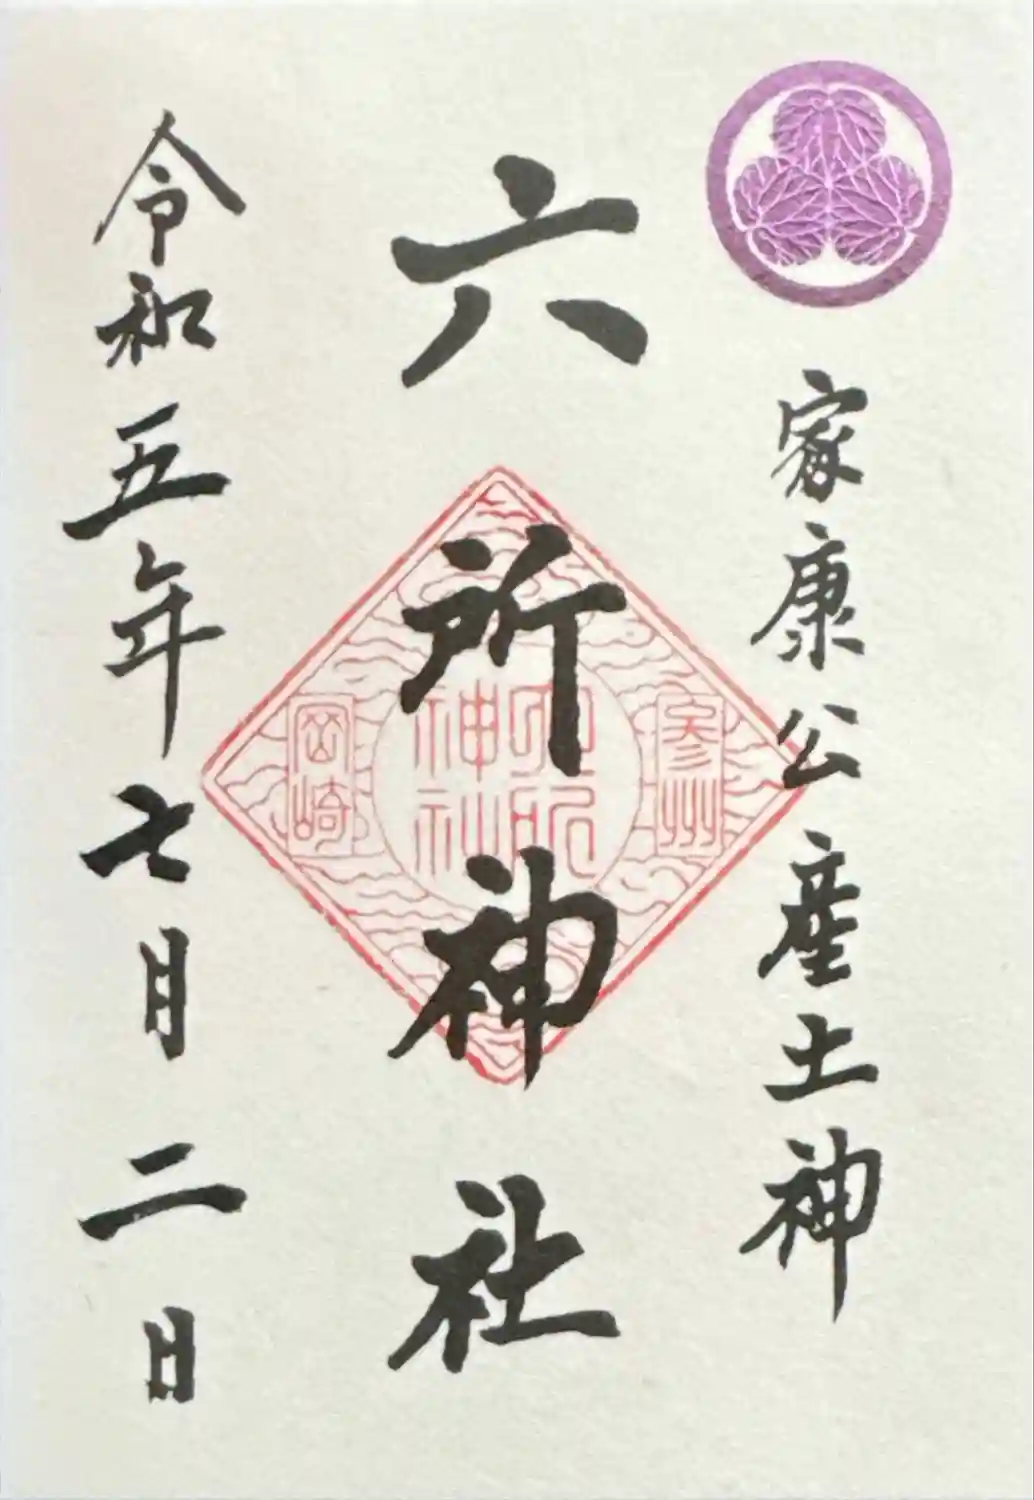 家康公産土神
六所神社
参州
六所神社
岡崎
令和五年七月二日